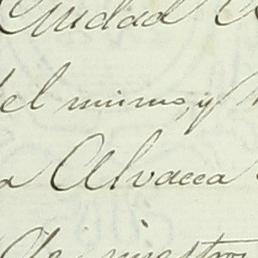 Ciudad
del mismo, y
Alvacea
de nuestros